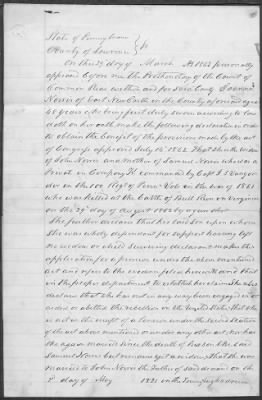 State of Pennsylvania
County of Lawrence } ss
On this 29 day of March AD 1863 personally
appeared before me the Prothonotary of the Court of
Common Pleas in and for said County Joanna
Norris of East New Castle in the County aforesaid aged
65 years who being first duly sworn according to law
doth on her oath make the following declaration in order
to obtain the benefit of the provisions made by the act
of Congress approved July 14th 1862. That she is the widow
of John Norris and Mother of Samuel Norris who was a
Private in Company H commanded by Capt
in the 100 Regt of Penn Vols in the war of 1861
who was killed at the battle of Bull Run in Virginia
on the 29th day of August 1862 by a gun shot
She further declares that her said son upon whom
she was wholly dependant for support having left
no widow or child surviving declarant makes this
application for a pension under the above mentioned
act and refers to the evidence filed herewith and that
in the proper department to establish her claim she also
declares that she has not in any way been engaged in or
aided or abetted the rebellion in the United States that she
is not in the receipt of a pension under the second section
of the act above mentioned or under any other act nor has
she again married since the death of her son the said
Samuel Norris but remains yet a widow. That she was
married to John Norris the Father of said on the
day of May 1821 in